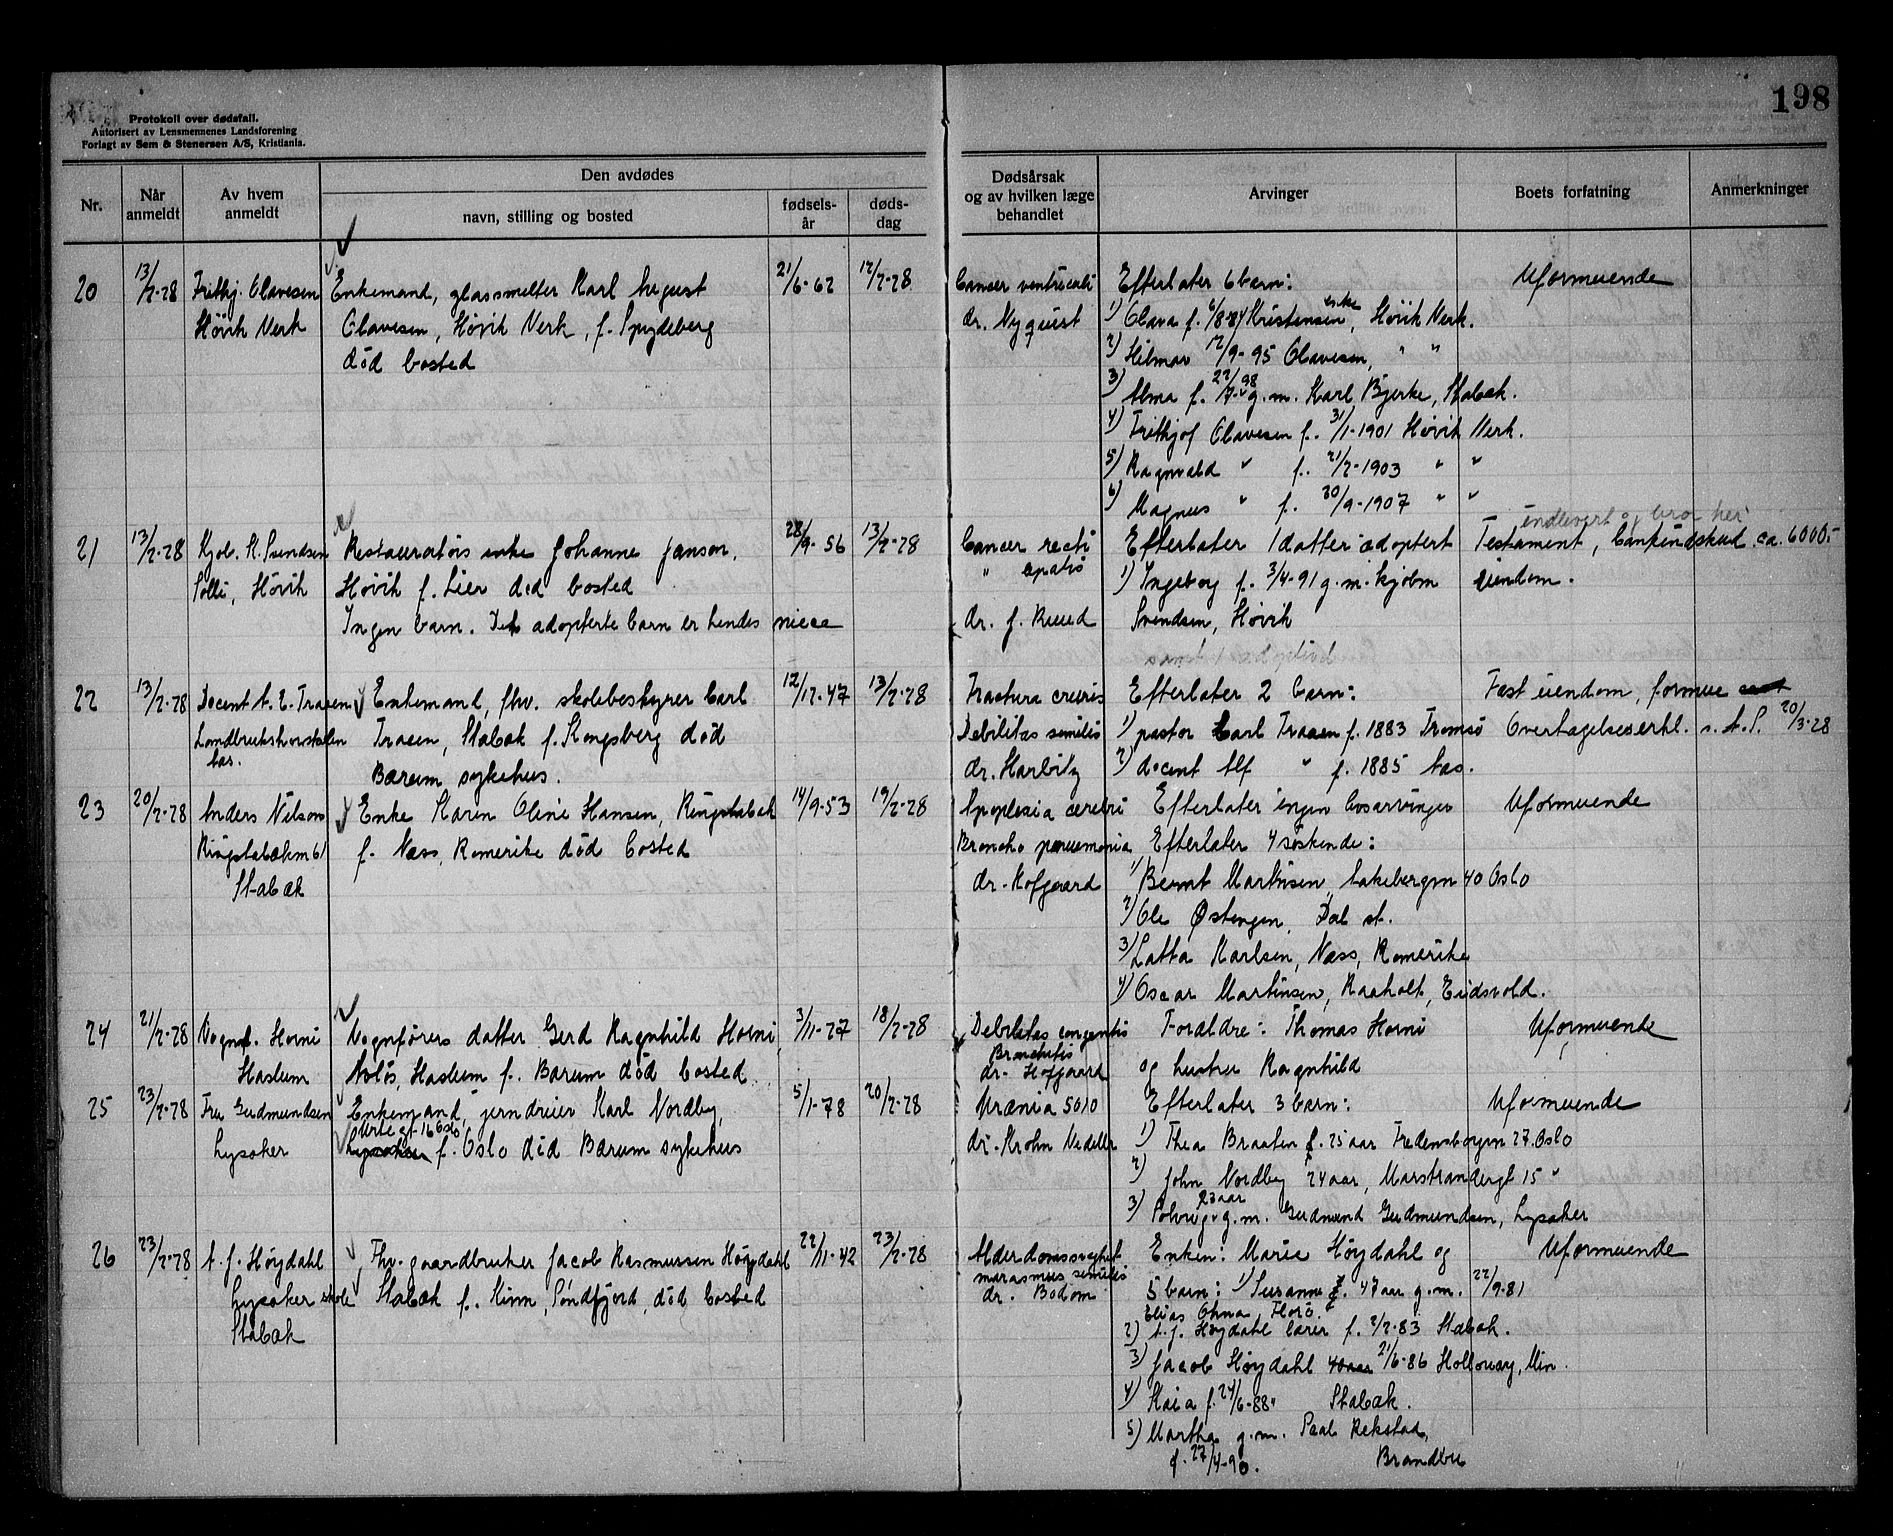 198
Protokoll over dødsfall.
Autorisert av Lensmennenes Landsforening
Forlagt av Sem & Stenersen A/S, Kristiania.
Nr.
Når anmeldt
Av hvem anmeldt
Den avdødes
navn, stilling og bosted
fødsels-år
døds-dag
Dødsårsak og av hvilken læge behandlet
Arvinger
Boets forfatning
Anmerkninger
20 13/2-28 Frithj. Olavesen Enkemand, glassmelter Karl August 21/6-62 12/2-28 Cancer ventriculi Efterlater 6 barn: Uformuende
Høvik Verk Olavesen, Høvik Verk, f. Spydeberg dr. Nyquist 1) Olava f. 6/8-84 Kristensen, enke, Høvik Verk.
død bosted 2) Hilmar 12/9-95 Olavesen, " "
3) Alma f. 22/7-98 g.m. Karl Bjerke, Stabæk.
4) Frithjof Olavesen f. 31/1-1901 Høvik Verk.
5) Ragnvald " f. 21/2-1903 " "
6) Magnus " f. 30/9-1907 " "
21 13/2-28 Kjøb. K. Svendsen Restauratørs enke Johanne Janson, 28/9-56 13/2-28 Cancer recti Efterlater 1 datter adoptert Testament, bankindskud ca. 6000.-
innlevert og bror her
Solli, Høvik Høvik f. Lier død bosted " epatis 1) Ingeborg f. 3/4-91 g.m. kjøbm eiendom.
Ingen barn. Det adopterte barn er hendes niece dr. J. Ruud Svendsen, Høvik
samt 1
22 13/2-28 Docent A. E. Traaen Enkemand, fhv. skolebestyrer Carl 12/12-47 13/2-28 Fractura cruris Efterlater 2 barn: Fast eiendom, formue
Landbrukshøiskolen Traaen, Stabæk f. Kongsberg død Debilitas senilis 1) pastor Carl Traaen f. 1883 Tromsø Overtagelseserkl. s. A.S. 20/3-28
Aas. Bærum sykehus. dr. Harbitz 2) docent Alf " f. 1885 Aas.
23 20/2-28 Anders Nilsen Enke Karen Oline Hansen, Ringstabæk 14/9-53 19/2-28 Apoplexia cerebri Efterlater ingen livsarvinger Uformuende
Ringstabækm 61 f. Næss, Romerike død bosted Broncho pneumonia Efterlater 4 søskende:
Stabæk dr. Hofgaard 1) Bernt Martinsen, Lakkebergm 40 Oslo
2) Ole Østengen, Dal st.
3) Latta Karlsen, Næss, Romerike
4) Oscar Martinsen, Raaholt, Eidsvold.
24 21/2-28 Vognf. Horni Vognførers datter Gerd Ragnhild Horni, 3/11-27 18/2-28 Debilitas congenitis Forældre: Thomas Horni Uformuende
Haslum Avløs, Haslum f. Bærum død bosted Bronchitis og hustru Ragnhild
dr. Hofgaard
25 23/2-28 Fru Gudmundsen Enkemand, jerndreier Karl Nordby, 5/1-78 20/2-28 Uræmia 5010 Efterlater 3 barn: Uformuende
Urtegt. 16 Oslo
Lysaker Lysaker f. Oslo død Bærum sykehus dr. Krohn Vedeller 1) Thea Braaten f. 25 aar Fredensborgvn 27. Oslo
2) John Nordby 24 aar, Marstrandergt 15 "
3) Solveig 23 aar g.m. Gudmund Gudmundsen, Lysaker
26 23/2-28 A. J. Høydahl Fhv. gaardbruker Jacob Rasmussen Høydahl 22/11-42 23/2-28 Alderdomssvaghet Enken: Marie Høydahl og Uformuende
Lysaker skole Stabæk f. Kinn, Søndfjord, død bosted marasmus senilis 5 barn: 1) Susanne f. 47 aar g.m. 22/9-81
Stabæk dr. Bodom Elias Ohma, Florø
2) A. J. Høydahl lærer f. 2/2-83 Stabæk.
3) Jacob Høydahl 40 aar 21/6-86 Holloway, Min.
4) Kaia f. 24/6-88 " Stabæk.
5) Martha g.m. Paal Rekstad,
f. 27/4-90. Brandbu